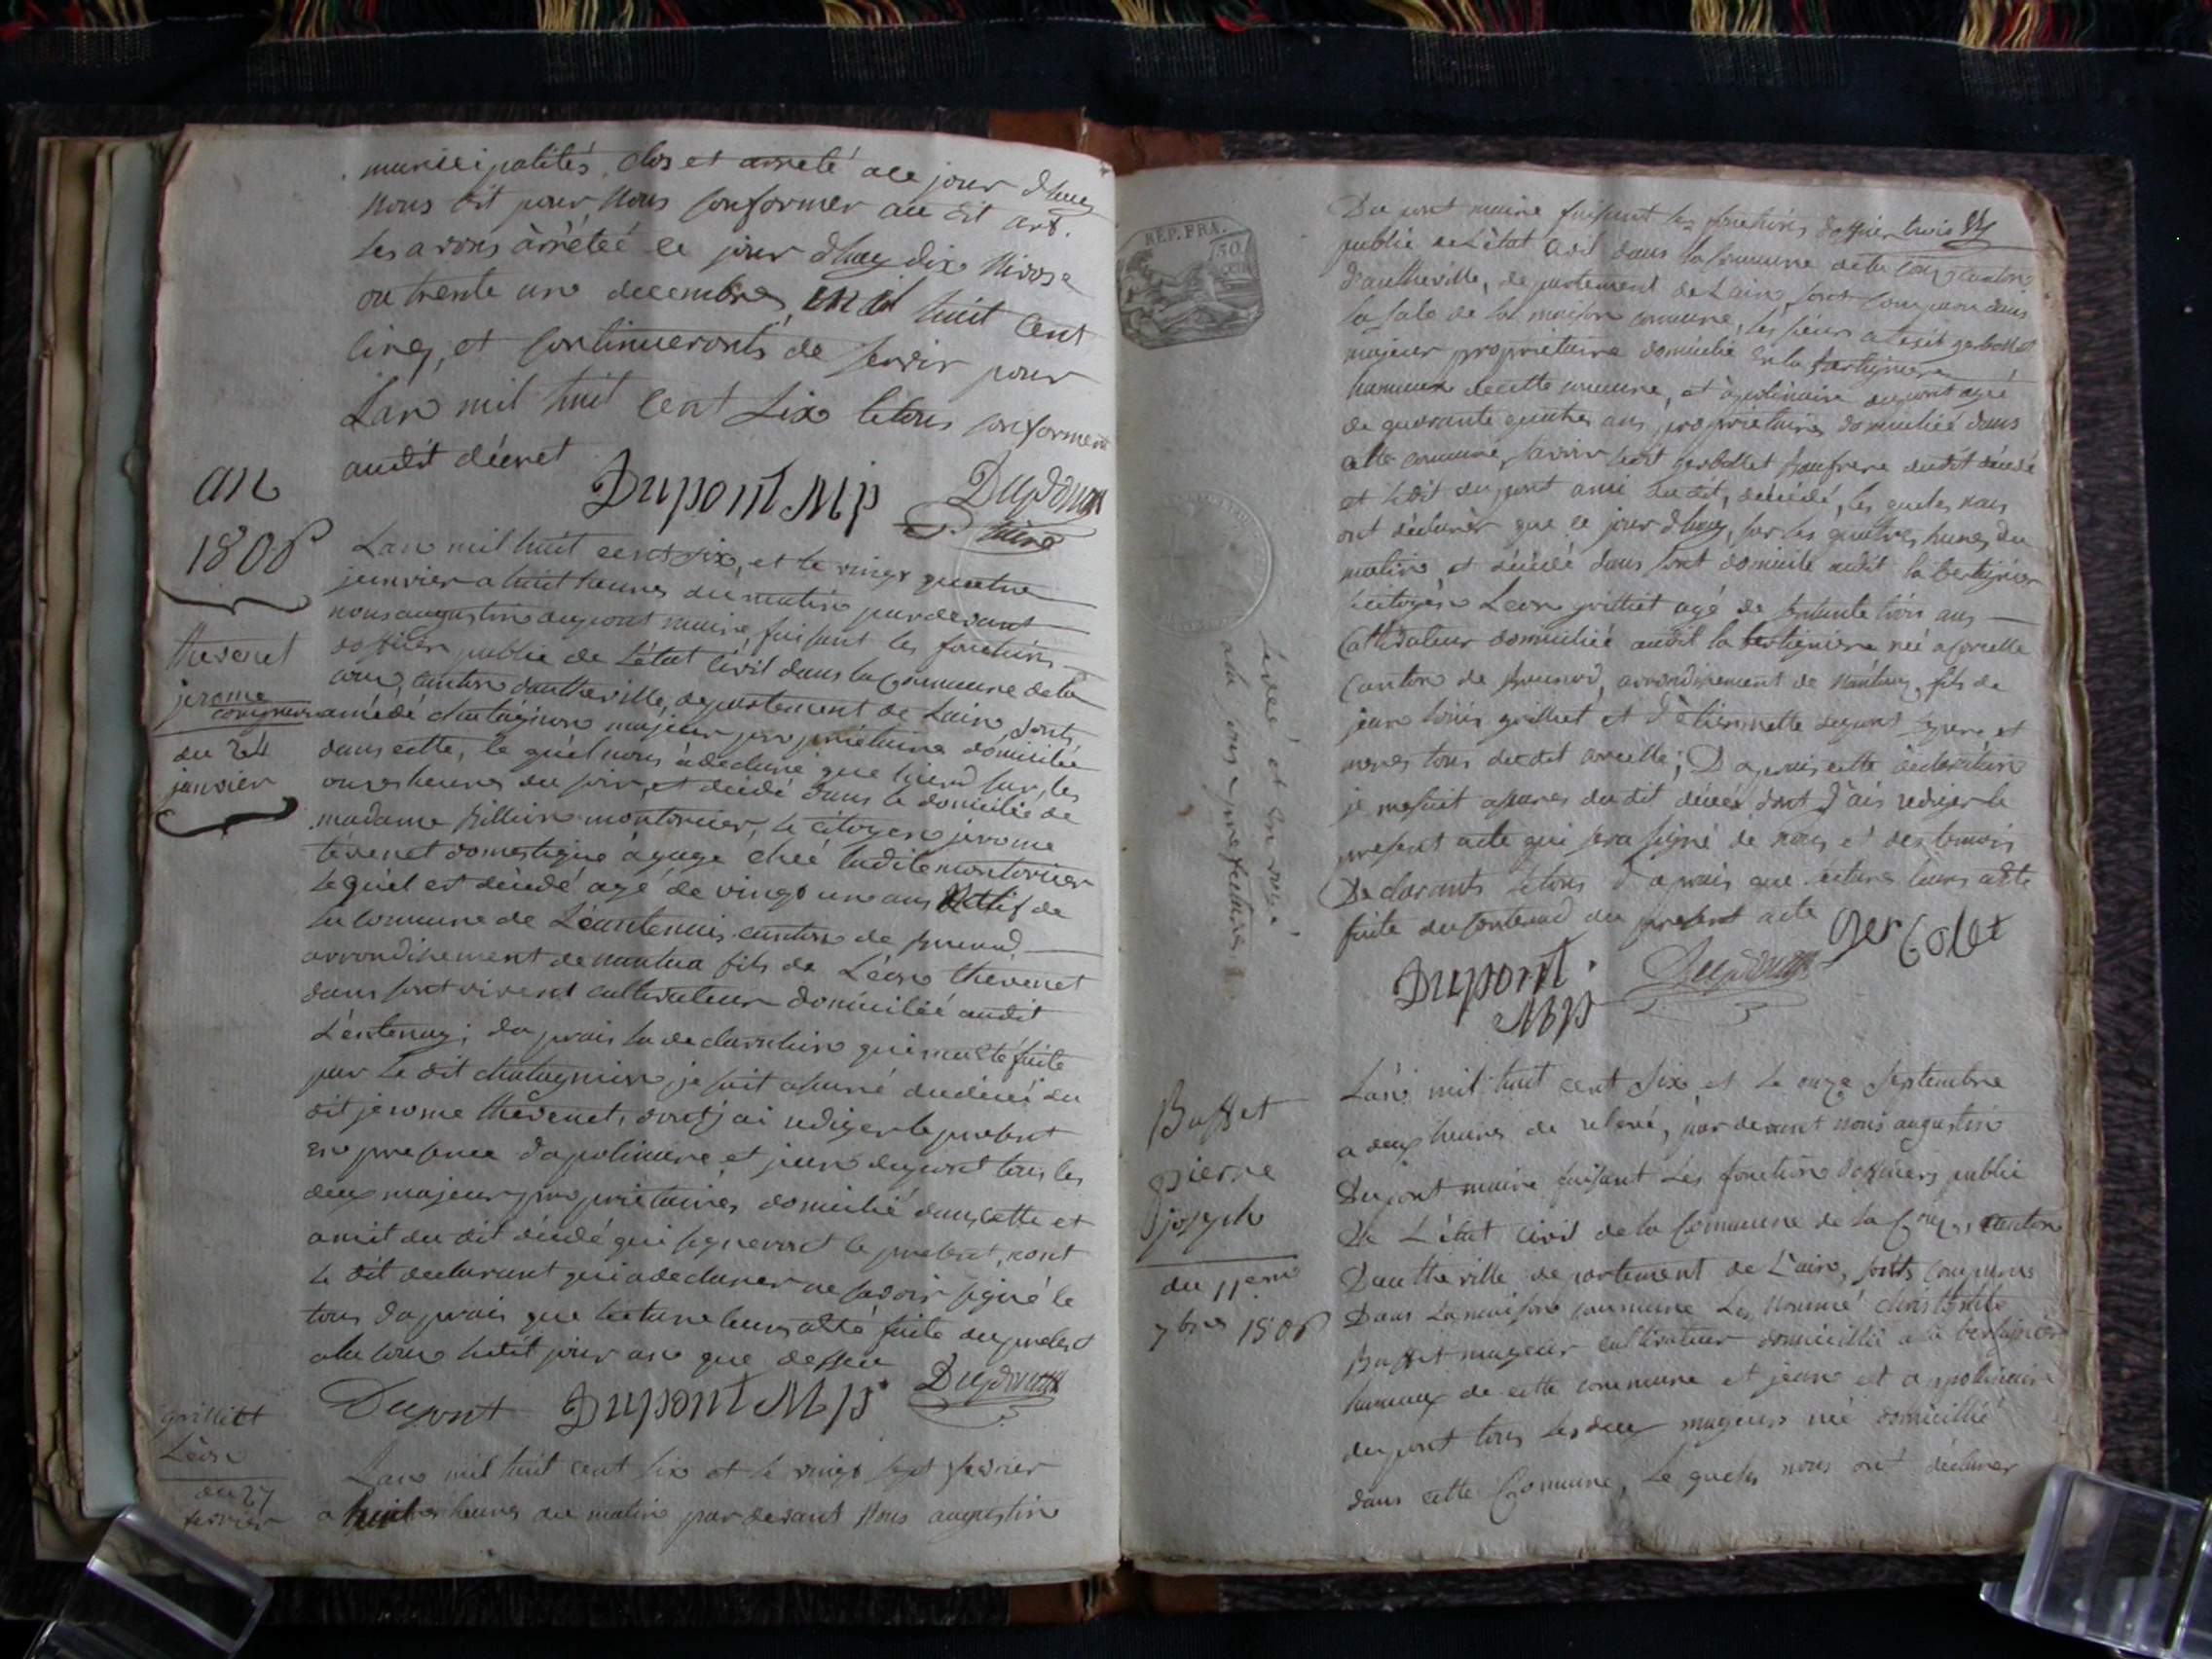 municipalités, clos et arreté ace jour dhuy
nous dit pour nous conformer au dit art.
les avons àrrêteé ce jour dhuy dix Nivose
ou trente un decembre, mil huit cent
cinq, et continueronts de servir pour
Lan mil huit cent six letous conforment
audit décret
Dupont MP
maire
an
1806
Lan mil huit cent six, et le vingt quatre
janvier a huit heures du matin par devant
nous augustin dupont maire, faisant les fonctions
dofficier public de Létat Civil dans la Commune dela
cou, canton dautheville, departement de Lain, sont
amédé chatagnion majeur propriétaire domicilié
dans cette, le quel nous à declaré que hierd sur les
onzes heures du soir, et décédé dans le domicilié de
madame montorcier, le citoyen jerome
tevenet domestique à gage cheé ladite montorcier
Lequel est décédé agé de vingt un ans Nattif de
la Commune de Léantenais canton de
arrondisement de nantua fils de Léon thevenet
dans sont vivent cultivateur domicilié audit
Léntenay; da prais la declaration qui ma été faite
par Le dit chatagnion, je suit assuré du décé du
dit jerome thevenet, dont jai rediger le présent
en presence dapolinaire et jean dupont tous les
deux majeur propriétaires domicilié dans cette et
amit du dit décédé qui signeront le present, nont
le dit declarant qui a declarer ne savoir signé le
tous daprais que lecture leurs atté faite du present
ala cou ledit jour an que dessu
Dupont Dupont MP
thevenet
jerome
du 24
janvier
grilliet
Léon
du 27
fevrier
Lan mil huit cent six et le vingt sept fevrier
a huit heures du matin par devant Nous augustin
REP. FRA.
Du pont maire faisant les fonctions dofficier trois
public de Létat Civil dans la Commune dela cou, canton
dautheville, departement de Lain, sont comparu dans
la sale de la maison comune, les sieurs
majeur propriétaire domicilié en la bertignere
hameau de cette comune, et àpolinaire dupont agé
de quarante quatre ans propriétaires domicilié dans
cette comune, savoir ledit gerbollet beaufrere dudit décédé
et ledit dupont ami du dit, décédé, les queles nous
ont déclarér que ce jour dhuy, sur les quatres heures du
matin, et décédé dans sont domicile audit la bertigniere
le citoyen Leon grilliet agé de septante trois ans
Cultivateur domicilié audit la bertigniere né a
Canton de , arrondisement de Nantua, fils de
jean Louis grilliet et détiennette dupont pere et
meres tous dudit ; Dapraix cette declaration
je me suit assures du dit décés dont Jais rediger le
present acte qui sera signé de nous et des temoin
Declarants Letous daprais que lecture leurs atté
faite du contenud du present acte
ger Colet
Dupont
MP
levée et en
ala sous prefecture
Buffet
pierre
joseph
du 11eme
7bre 1806
Lan mil huit cent six, et le onze Septembre
a deux heures de relevé, par devant nous augustin
Dupont maire faisant Les fonction dofficiers public
De Létat civil de la Commune de la Cou, canton
Dautheville departement de Lain, sonts comparus
Dans la maison commune Les Nommé
Buffet mageur cultivateur domicillié a la bertignier
hameaux de cette commune et jean et appolinaire
dupont tous les deux mageurs né domicillié
dans cette Commune, Le queles nous ont déclarer